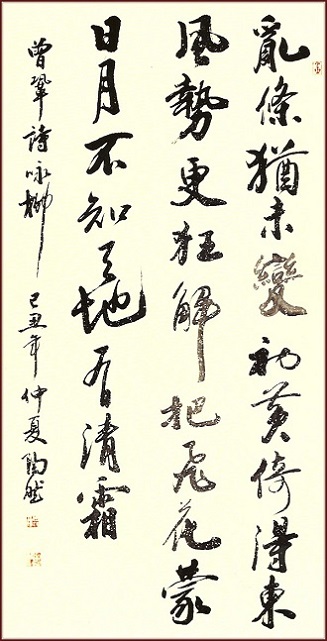 亂條猶未變初黃倚得東
風勢更狂解把飛花蒙
日月不知天地有清霜
曾鞏詩咏柳 己丑年仲夏